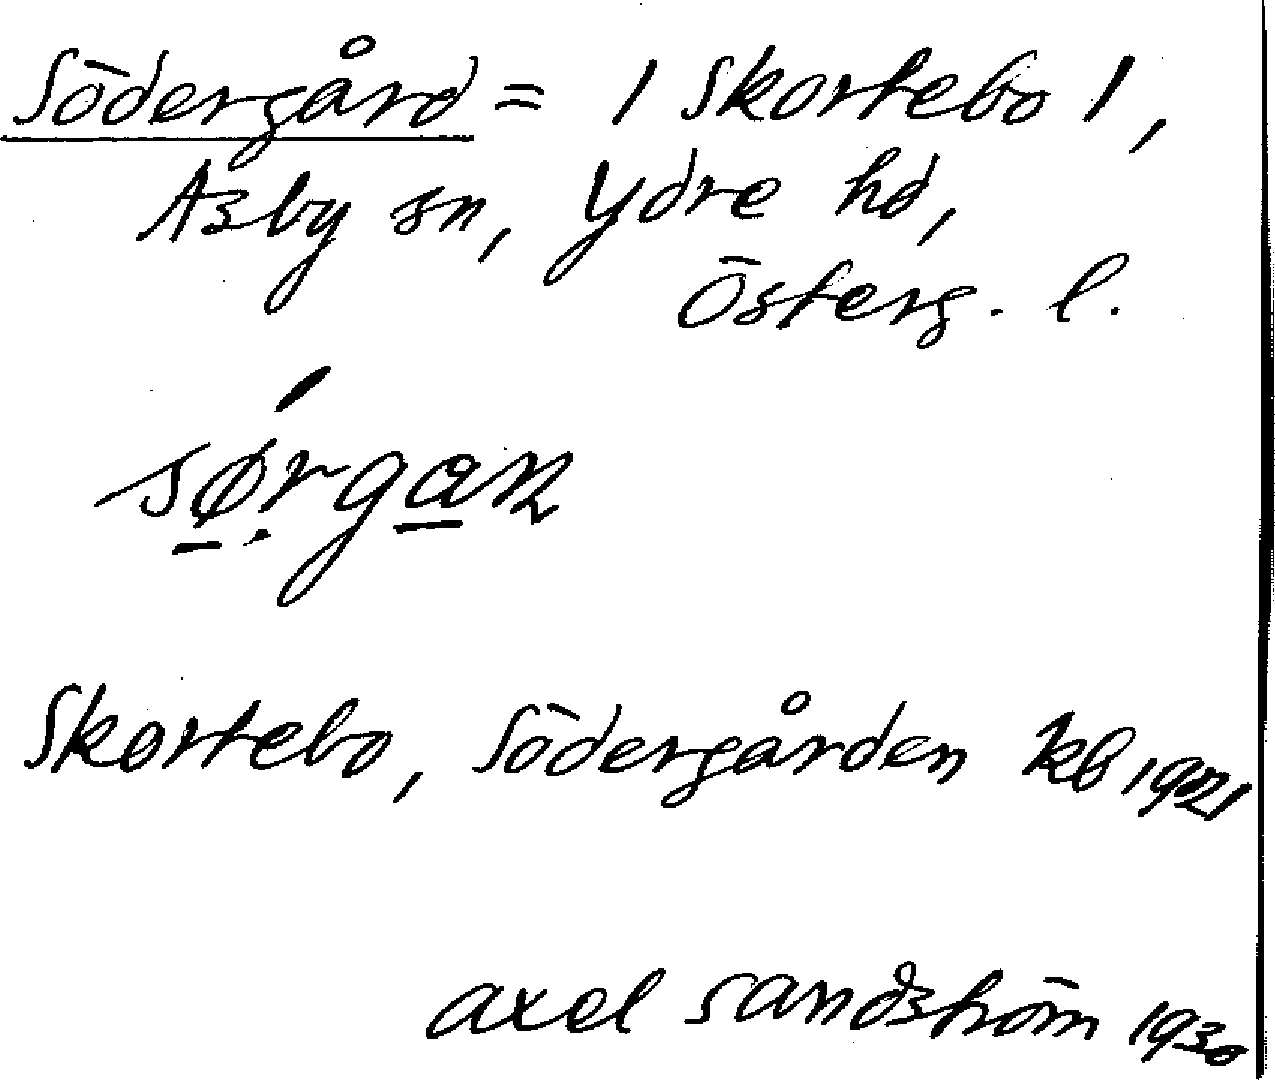 Södergård = 1 Skortebo 1,
Asby sn, Ydre hd,
Österg. l.
sǿ̠rga̠n
Skortebo, Södergården kb 1921
Axel Sandström 1930